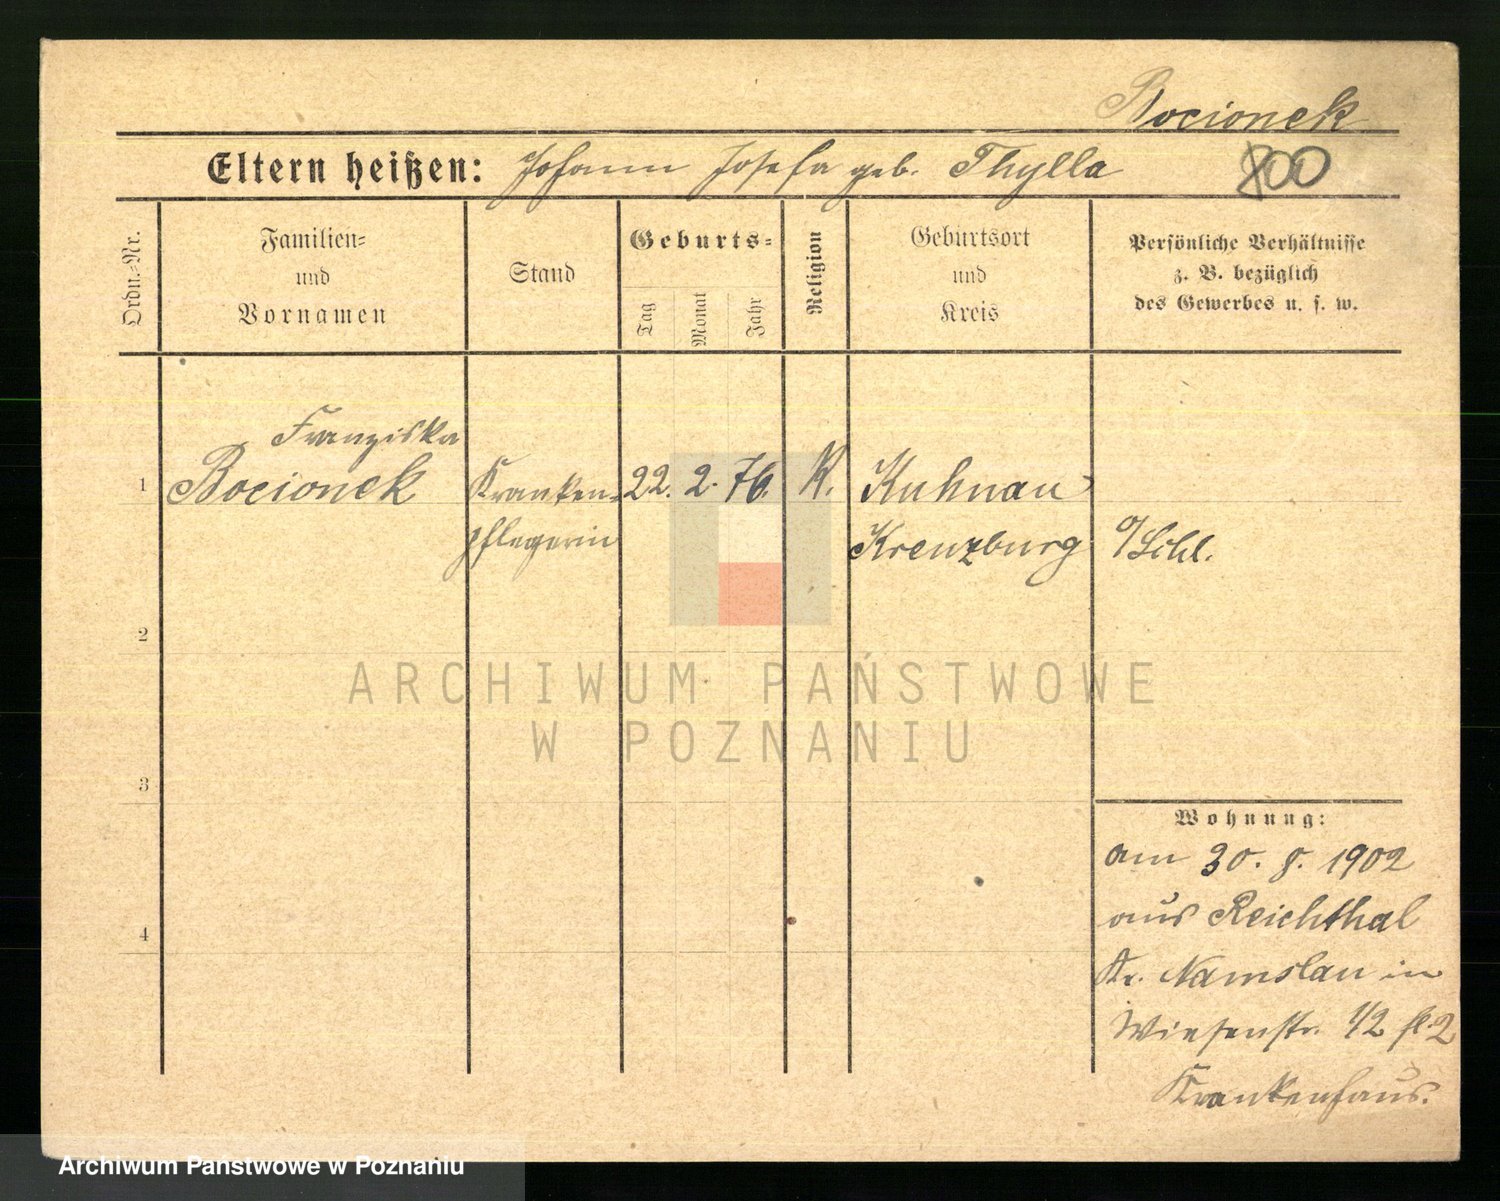 Bocionek
Eltern heißen: Johann Josefa geb. Thylla 800
Ordn.-Nr.
Familien-
und
Vornamen
Stand
Geburts-
Tag
Monat
Jahr
Religion
Geburtsort
und
Kreis
Persönliche Verhältnisse
z. B. bezüglich
des Gewerbes u. s. w.
Franziska
1 Bocionek Kranken- 22. 2. 76. K. Kuhnau
pflegerin Kreuzburg O/Schl.
2
3
4
Wohnung:
am 30. 8. 1902
aus Reichthal
Kr. Namslau in
Wiesenstr. 1/2 2
Krankenhaus.
ARCHIWUM PAŃSTWOWE
W POZNANIU
Archiwum Państwowe w Poznaniu